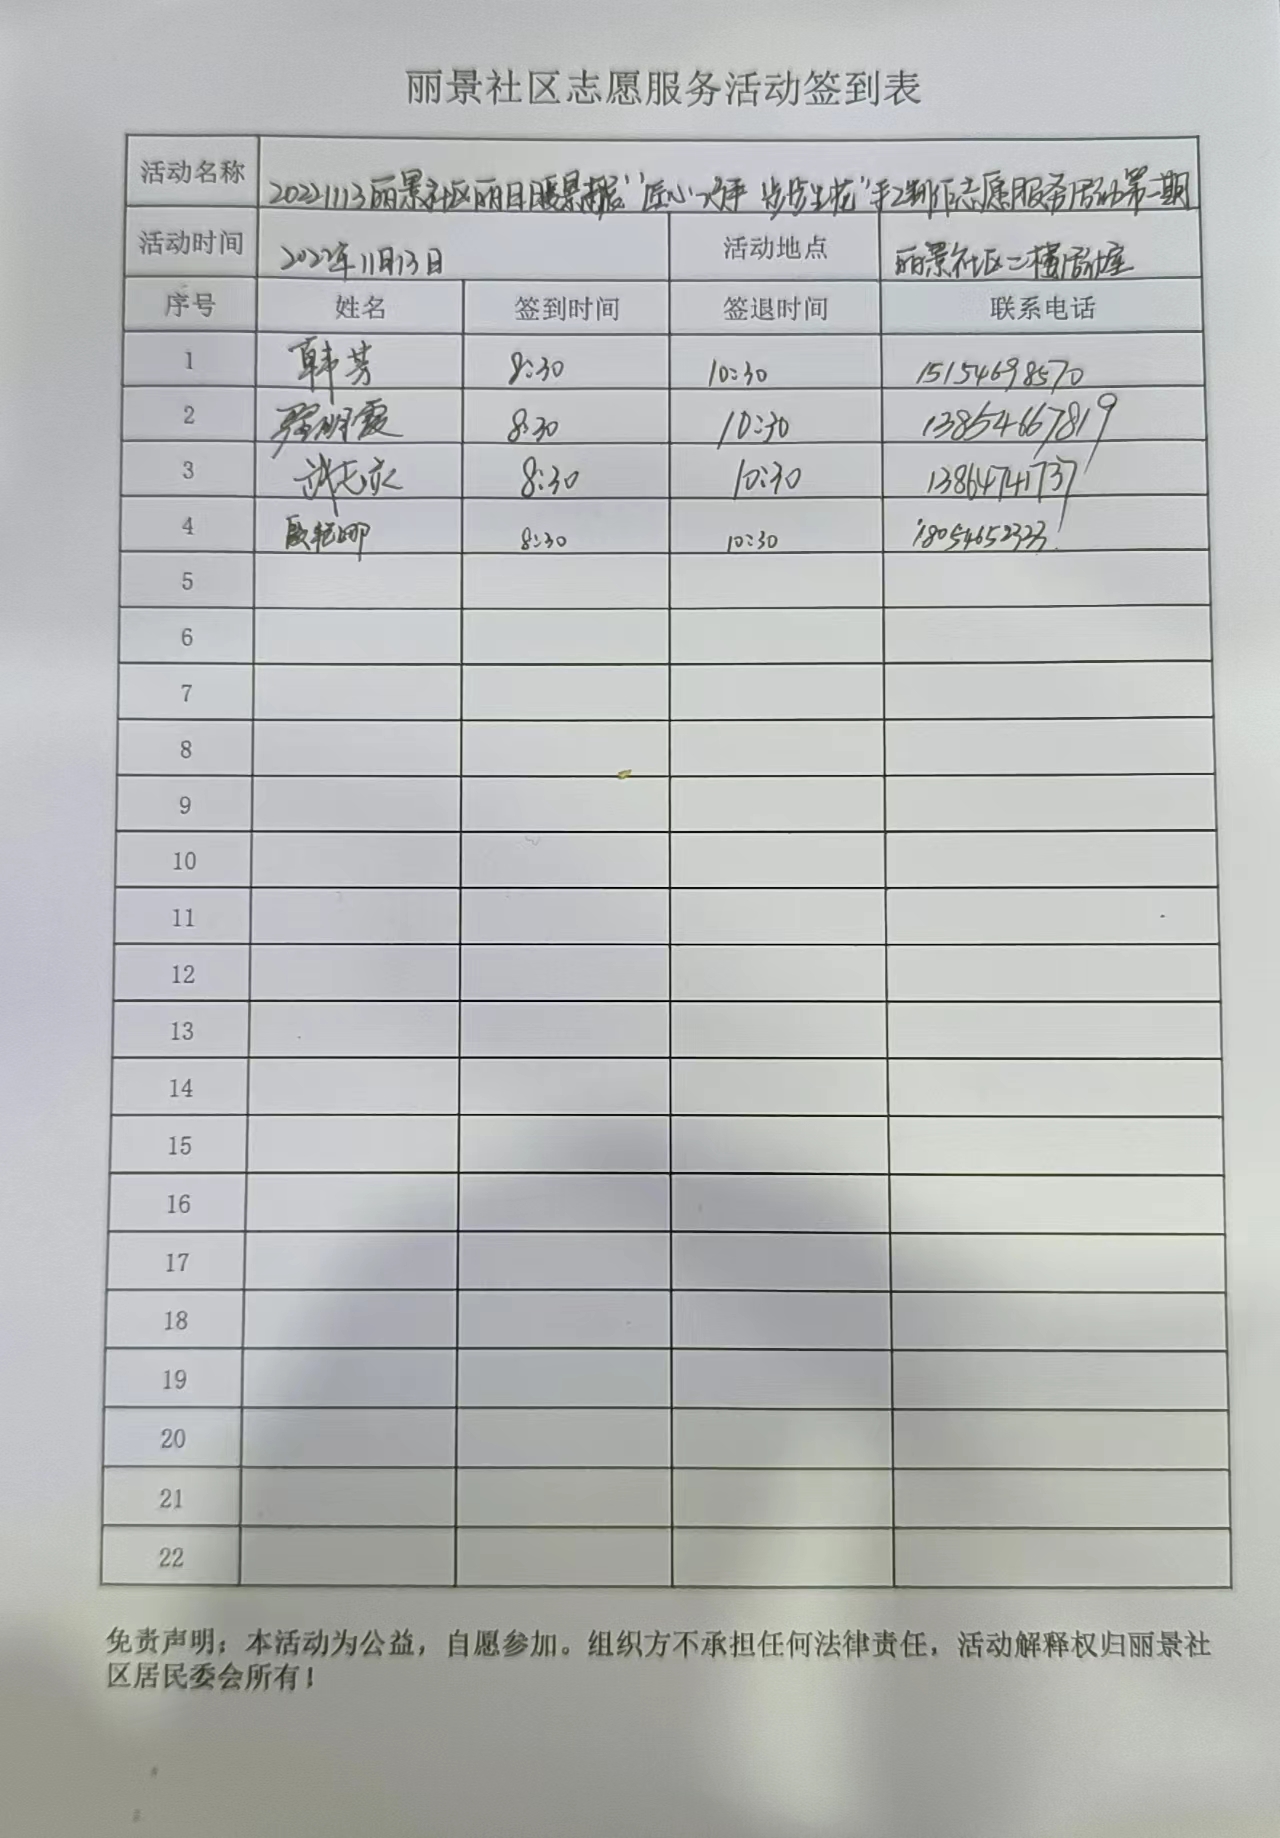 丽景社区志愿服务活动签到表
活动名称 20221113丽景社区丽日暖景 "匠心 步步生花"手工制作志愿服务活动第二期
活动时间 2022年11月13日 活动地点 丽景社区二楼活动室
序号 姓名 签到时间 签退时间 联系电话
1 韩芳 8:30 10:30 15154698570
2 8:30 10:30 13854667819
3 8:30 10:30 13864741737
4 8:30 10:30 18054652323
5
6
7
8
9
10
11
12
13
14
15
16
17
18
19
20
21
22
免责声明：本活动为公益，自愿参加。组织方不承担任何法律责任，活动解释权归丽景社
区居民委会所有！